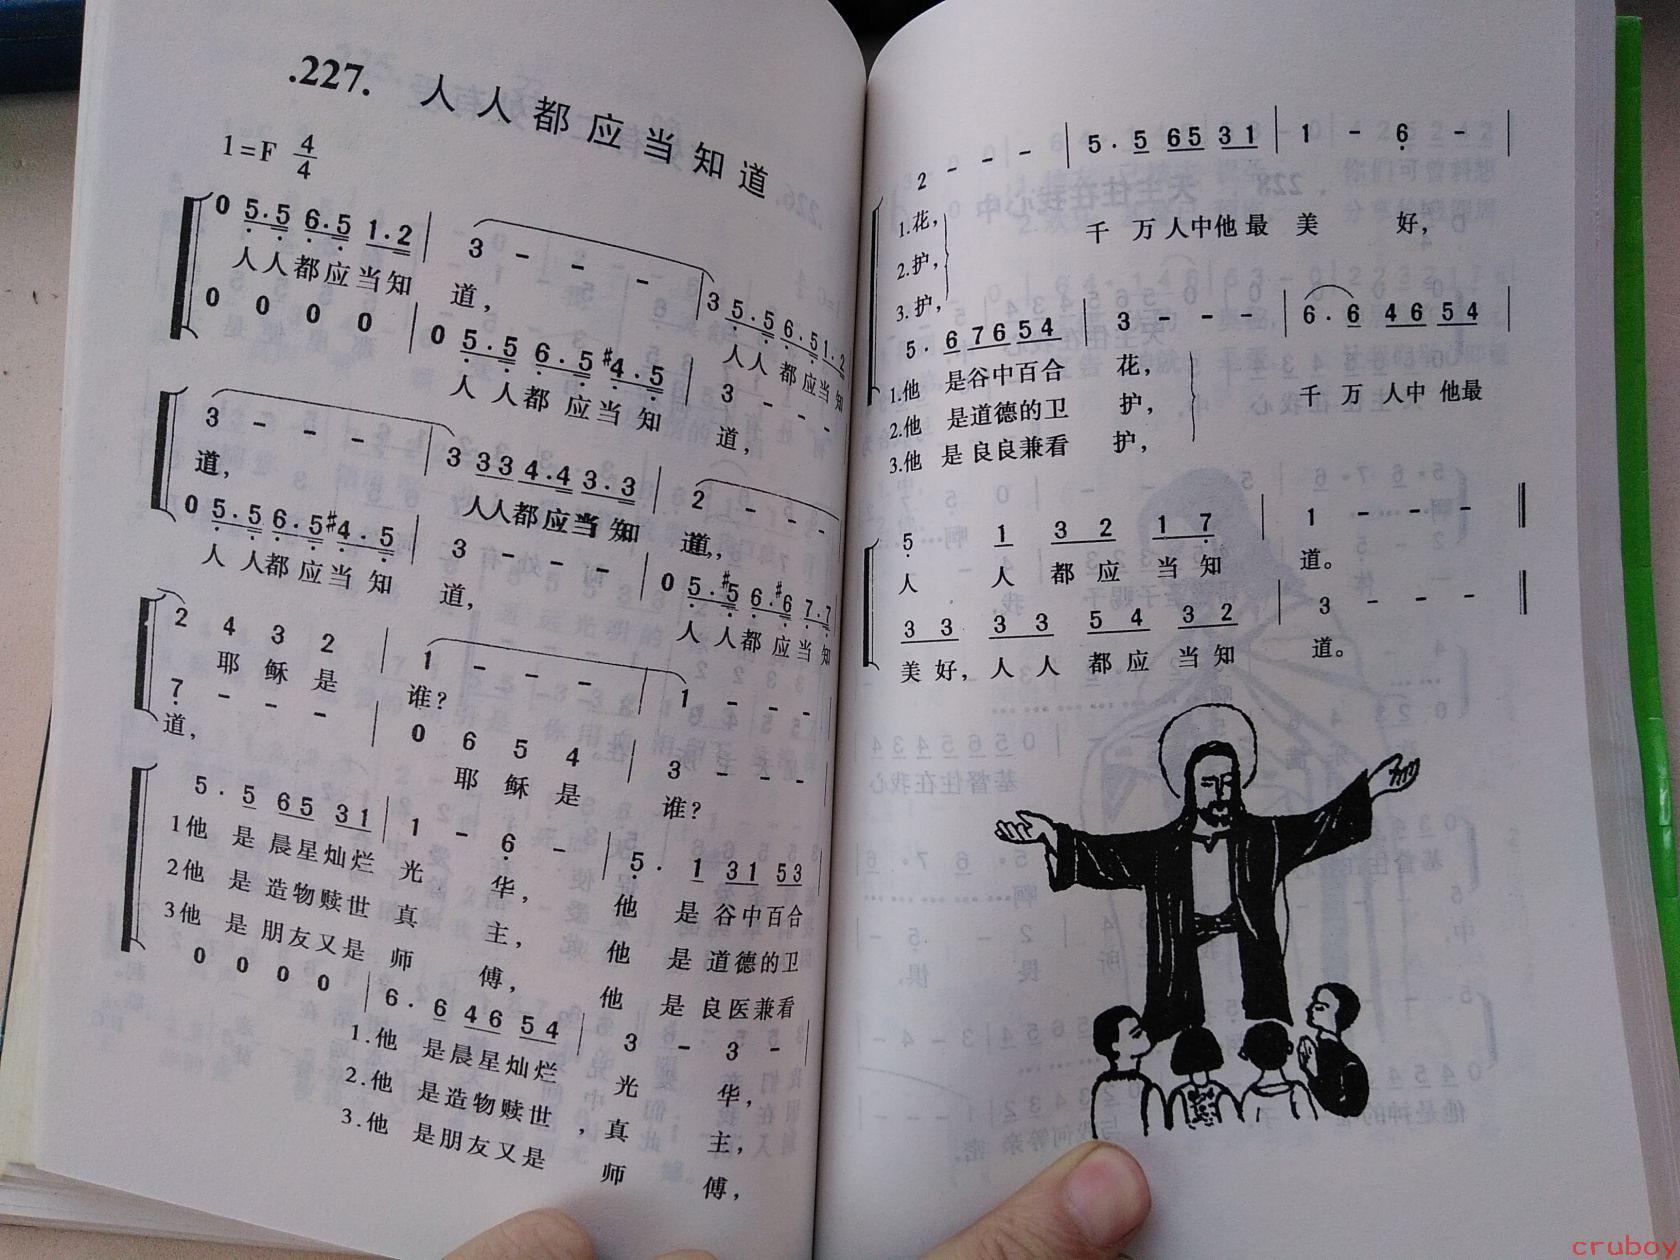 .227. 人人都应当知道
1=F 4/4
0 5.5 6.5 1.2 | 3 - - - | 3 5.5 6.5 1.2
人人都应当知 道， 人人都应当知
0 0 0 0 | 0 5.5 6.5 #4.5 | 3 - - -
人人都应当知 道，
3 - - - | 3 33 4.4 3.3 | 2 - - -
道， 人人都应当知 道，
0 5.5 6.5 #4.5 | 3 - - - | 0 5.#5 6.#6 7.7
人人都应当知 道， 人人都应当知
2 4 3 2 | 1 - - - | 1 - - -
耶稣是 谁？
7 - - - | 0 6 5 4 | 3 - - -
道， 耶稣是 谁？
5. 5 65 31 | 1 - 6 - | 5. 1 31 53
1他 是晨星灿烂 光 华， 他 是谷中百合
2他 是造物赎世 真 主， 他 是道德的卫
3他 是朋友又是 师 傅， 他 是良医兼看
0 0 0 0 | 6. 6 46 54 | 3 - 3 -
1.他 是晨星灿烂 光 华，
2.他 是造物赎世，真 主，
3.他 是朋友又是 师 傅，
2 - - - | 5. 5 65 31 | 1 - 6 -
1.花， 千万人中他最 美 好，
2.护，
3.护，
5. 6 76 54 | 3 - - - | 6. 6 46 54
1.他 是谷中百合 花， 千万人中他最
2.他 是道德的卫 护，
3.他 是良良兼看 护，
5 1 3 2 1 7 | 1 - - -
人 人 都 应 当 知 道。
3 3 3 3 5 4 3 2 | 3 - - -
美好，人人都应当知 道。
cruboy